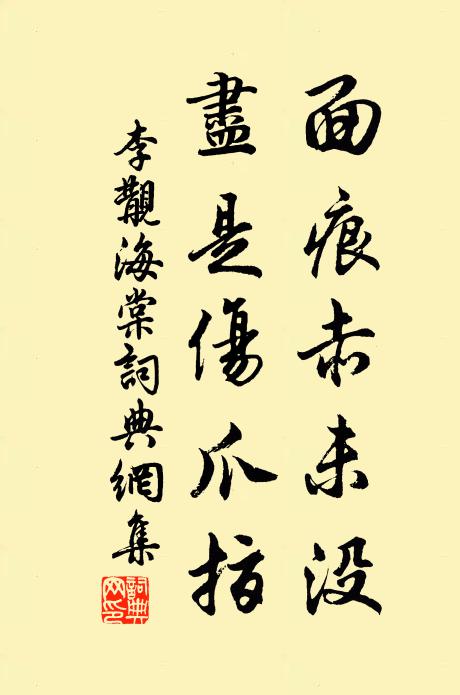 面痕赤未没
盡是傷爪指
李觀海棠詞典網集
詞典網印